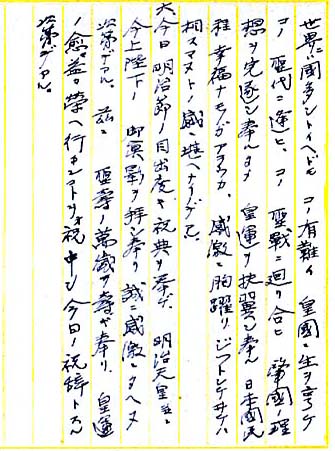 世界ニ国多シトイヘドモ コノ有難イ 皇国ニ生ヲ享ケ
コノ聖代ニ逢ヒ、コノ 聖戦ニ廻リ合ヒ 肇国ノ理
想ヲ完遂シ奉ルタメ 皇運ヲ扶翼シ奉ル 日本国民
程 幸福ナモノガアラウカ、感激ニ胸躍リ ジツトシテヰテハ
相スマヌトノ感ニ堪ヘナイノデアル。
六、今日 明治節ノ目出度キ祝典ヲ挙ゲ 明治天皇並ニ
今上陛下ノ 御真影ヲ拝シ奉リ 誠ニ感激ニタヘヌ
次第デアル。茲ニ 聖寿ノ萬歳ヲ寿ギ奉リ、皇運
ノ愈々益々栄ヘ行カンコトヲ祝シ申シ 今日ノ祝辞トスル
次第デアル。